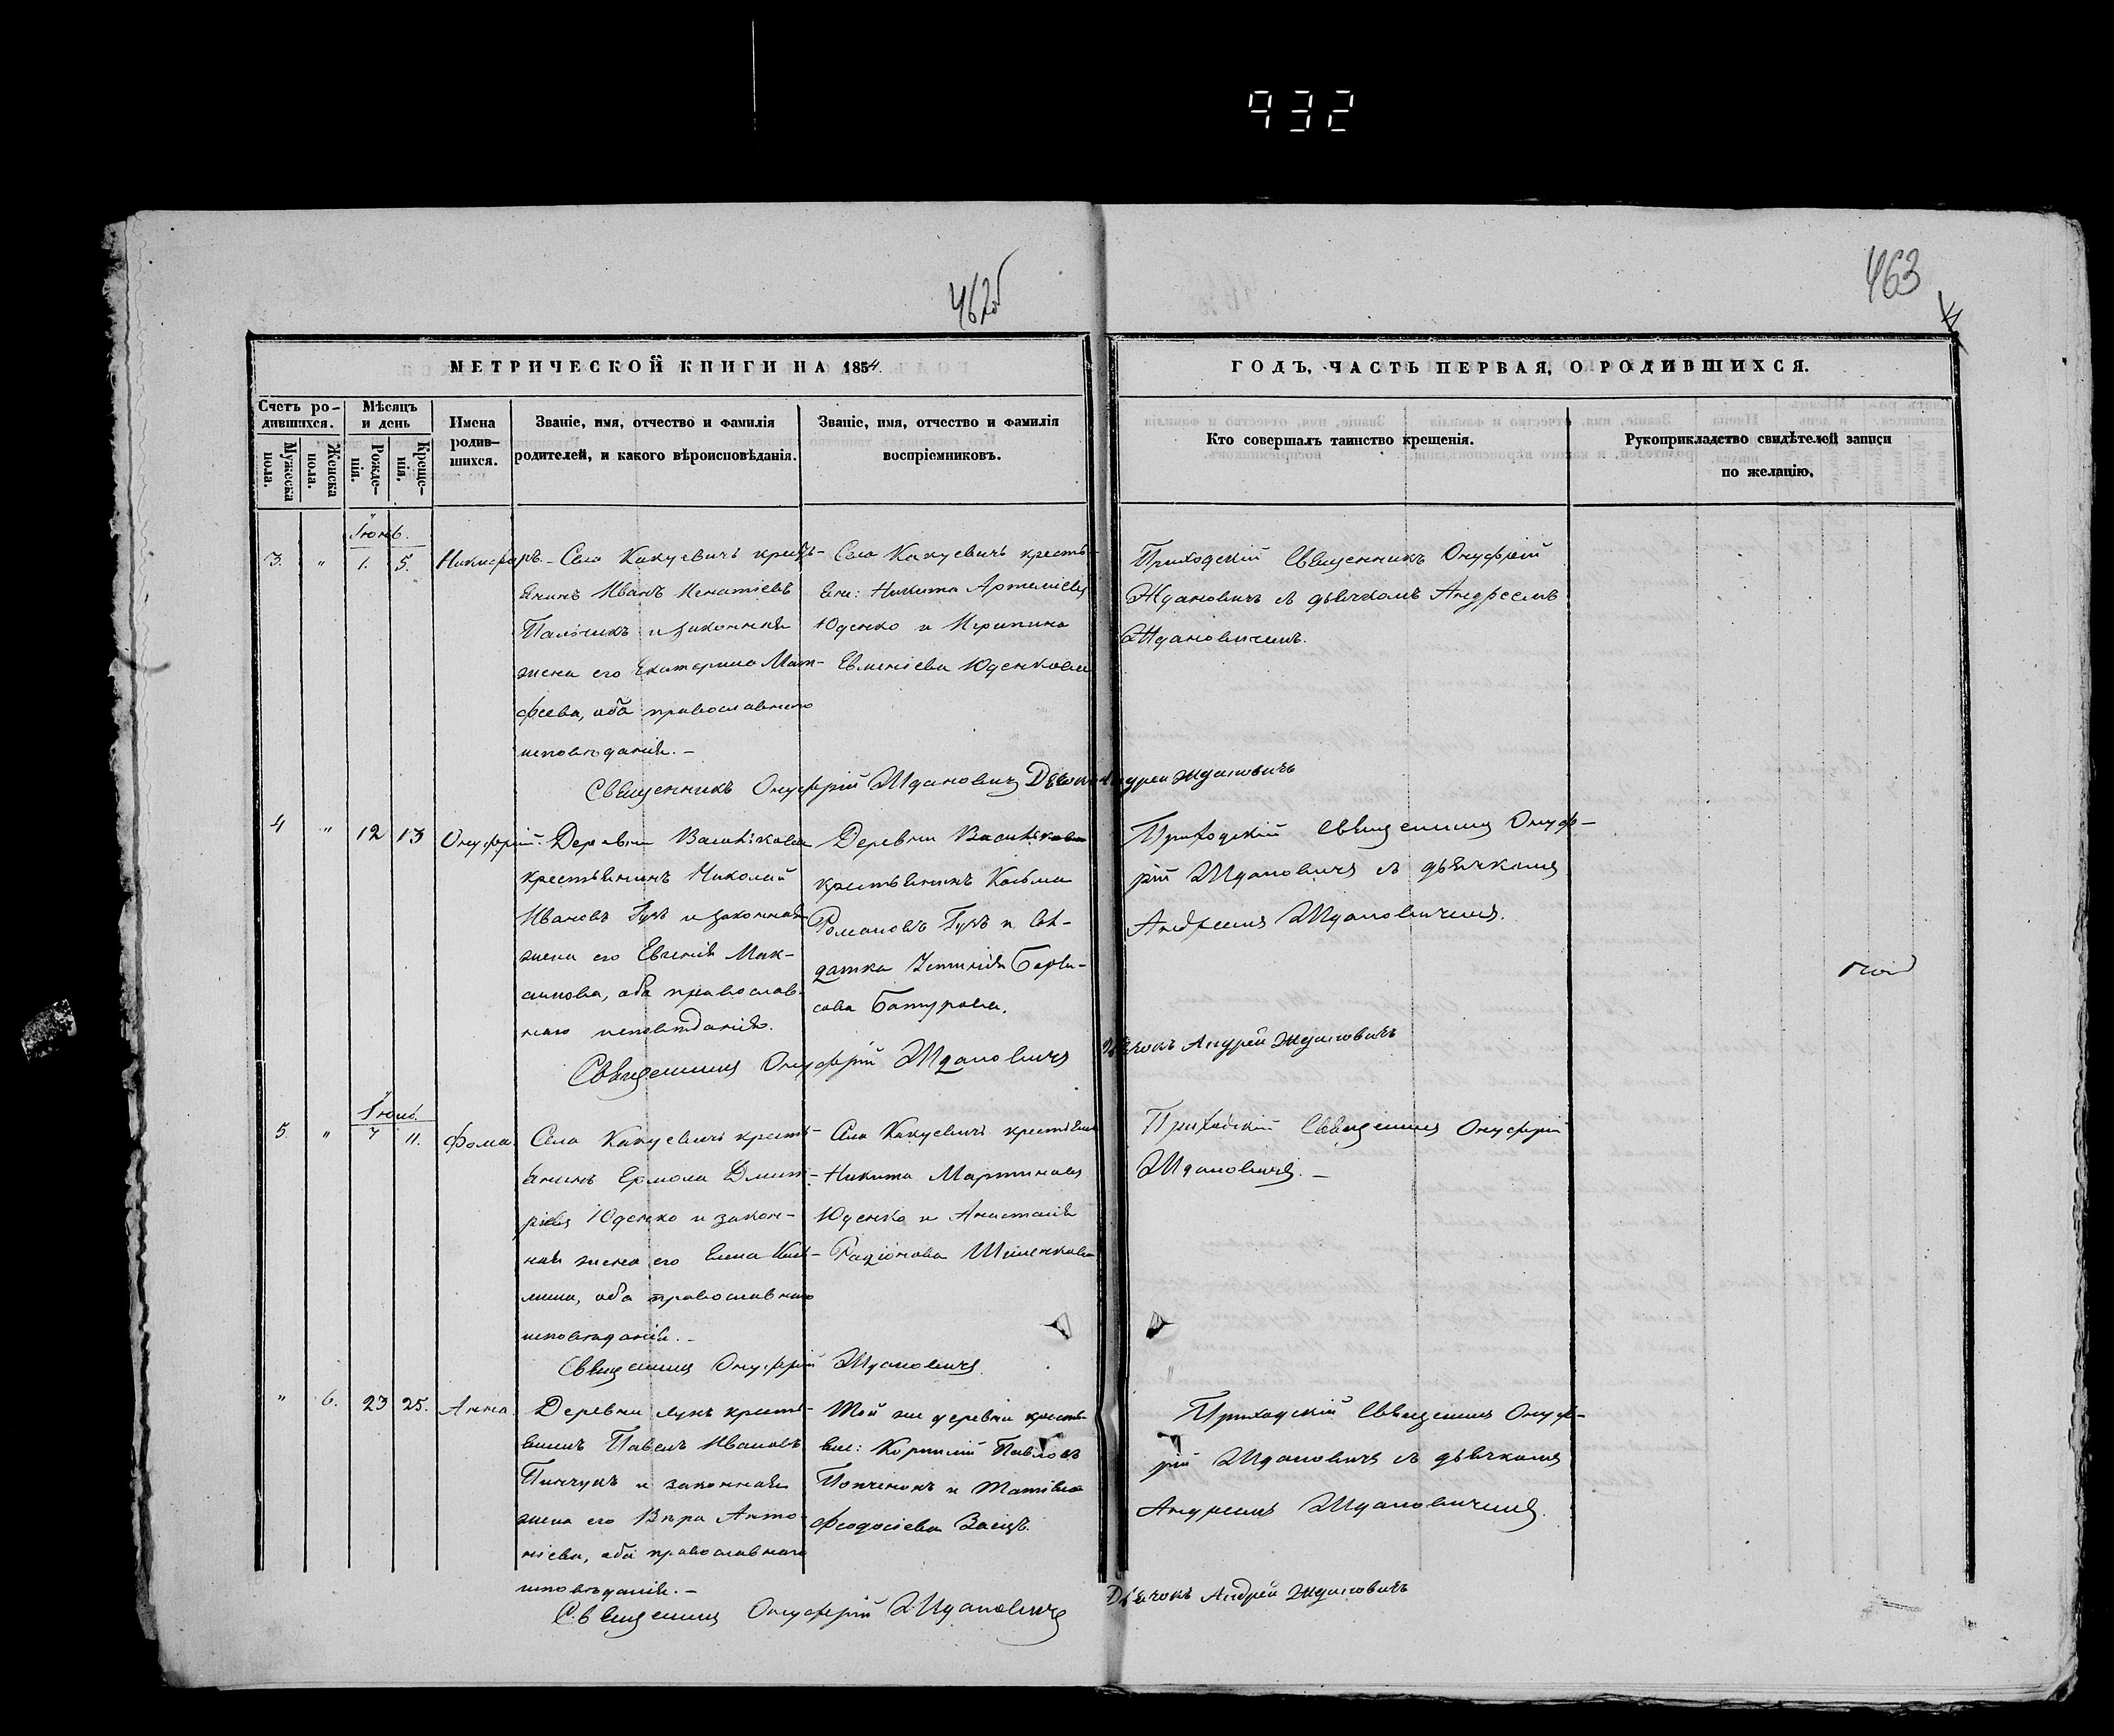 932
462об
463
МЕТРИЧЕСКОЙ КНИГИ НА 1854.
ГОДЪ, ЧАСТЬ ПЕРВАЯ, О РОДИВШИХСЯ.
Счетъ ро-
дившихся.
Мужеска
пола.
Женска
пола.
Мѣсяцъ
и день
Рожде-
нія.
Креще-
нія.
Имена
родив-
шихся.
Званіе, имя, отчество и фамилія
родителей, и какого вѣроисповѣданія.
Званіе, имя, отчество и фамилія
воспріемниковъ.
Кто совершалъ таинство крещенія.
Рукоприкладство свидѣтелей записи
по желанію.
Іюнь.
3. " 1. 5. Никифоръ.
Села Какуевичъ кресть-
янинъ Иванъ Игнатіевъ
и законная
жена его Екатерина Мат-
феева, оба православнаго
исповѣданія. –
Села Какуевичъ кресть-
яне: Никита Артеміевъ
Юденко и Ирипина
Евменіева Юденкова
Приходскій Священникъ Онуфрій
Ждановичъ съ дьячкомъ Андреемъ
Ждановичемъ.
Священникъ Онуфрій Ждановичъ Дьячокъ Андрей Ждановичъ
4 " 12 13 Онуфрій.
Деревни Васильковки
крестьянинъ Николай
Ивановъ Гукъ и законная
жена его Евгенія Мак-
симова, оба православ-
наго исповѣданія.
Деревни
крестьянинъ Косьма
Романовъ Гукъ и сол-
датка Бори-
сова Батурова.
Приходскій Священникъ Онуф-
рій Ждановичъ съ дьячкомъ
Андреемъ Ждановичемъ.
Священникъ Онуфрій Ждановичъ Дьячокъ Андрей Ждановичъ
5 " 7 11. Фома.
Села Какуевичъ кресть-
янинъ Ермола Дмит-
ріевъ Юденко и закон-
ная жена его Елена
оба православнаго
исповѣданія. –
Села Какуевичъ крестьяне
Никита Мартиновъ
Юденко и Анастасія
Родіонова Шиленкова
Приходскій Священникъ Онуфрій
Ждановичъ. –
Священникъ Онуфрій Ждановичъ
" 6. 23 25. Анна.
Деревни Лукъ кресть-
янинъ Павелъ Ивановъ
Пинчукъ и законная
жена его Вѣра Анто-
ніева, оба православнаго
исповѣданія. –
Той же деревни кресть-
яне: Корнилій Павловъ
и
Феодосіева Заецъ.
Приходскій Священникъ Онуф-
рій Ждановичъ съ дьячкомъ
Андреемъ Ждановичемъ.
Священникъ Онуфрій Ждановичъ
Дьячокъ Андрей Ждановичъ